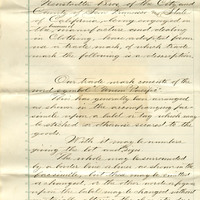 of the City and
County of San Francisco and State
of California, having engaged in
the manufacture and dealing
in Clothing, have adopted for
use a trade mark, of which trade
mark the following is a description,
Our trade mark consists of the
word symbol "
This has generally been arranged
as shown in the accompanying fac
simile upon a label or tag which may
be stitched or otherwise secured to the
goods.
With it may be number
giving the lot and size
The whole may be surrounded
by a border line as shown in the
fac simile, but this may be omitted
or changed, or the other
upon the label may be changed without